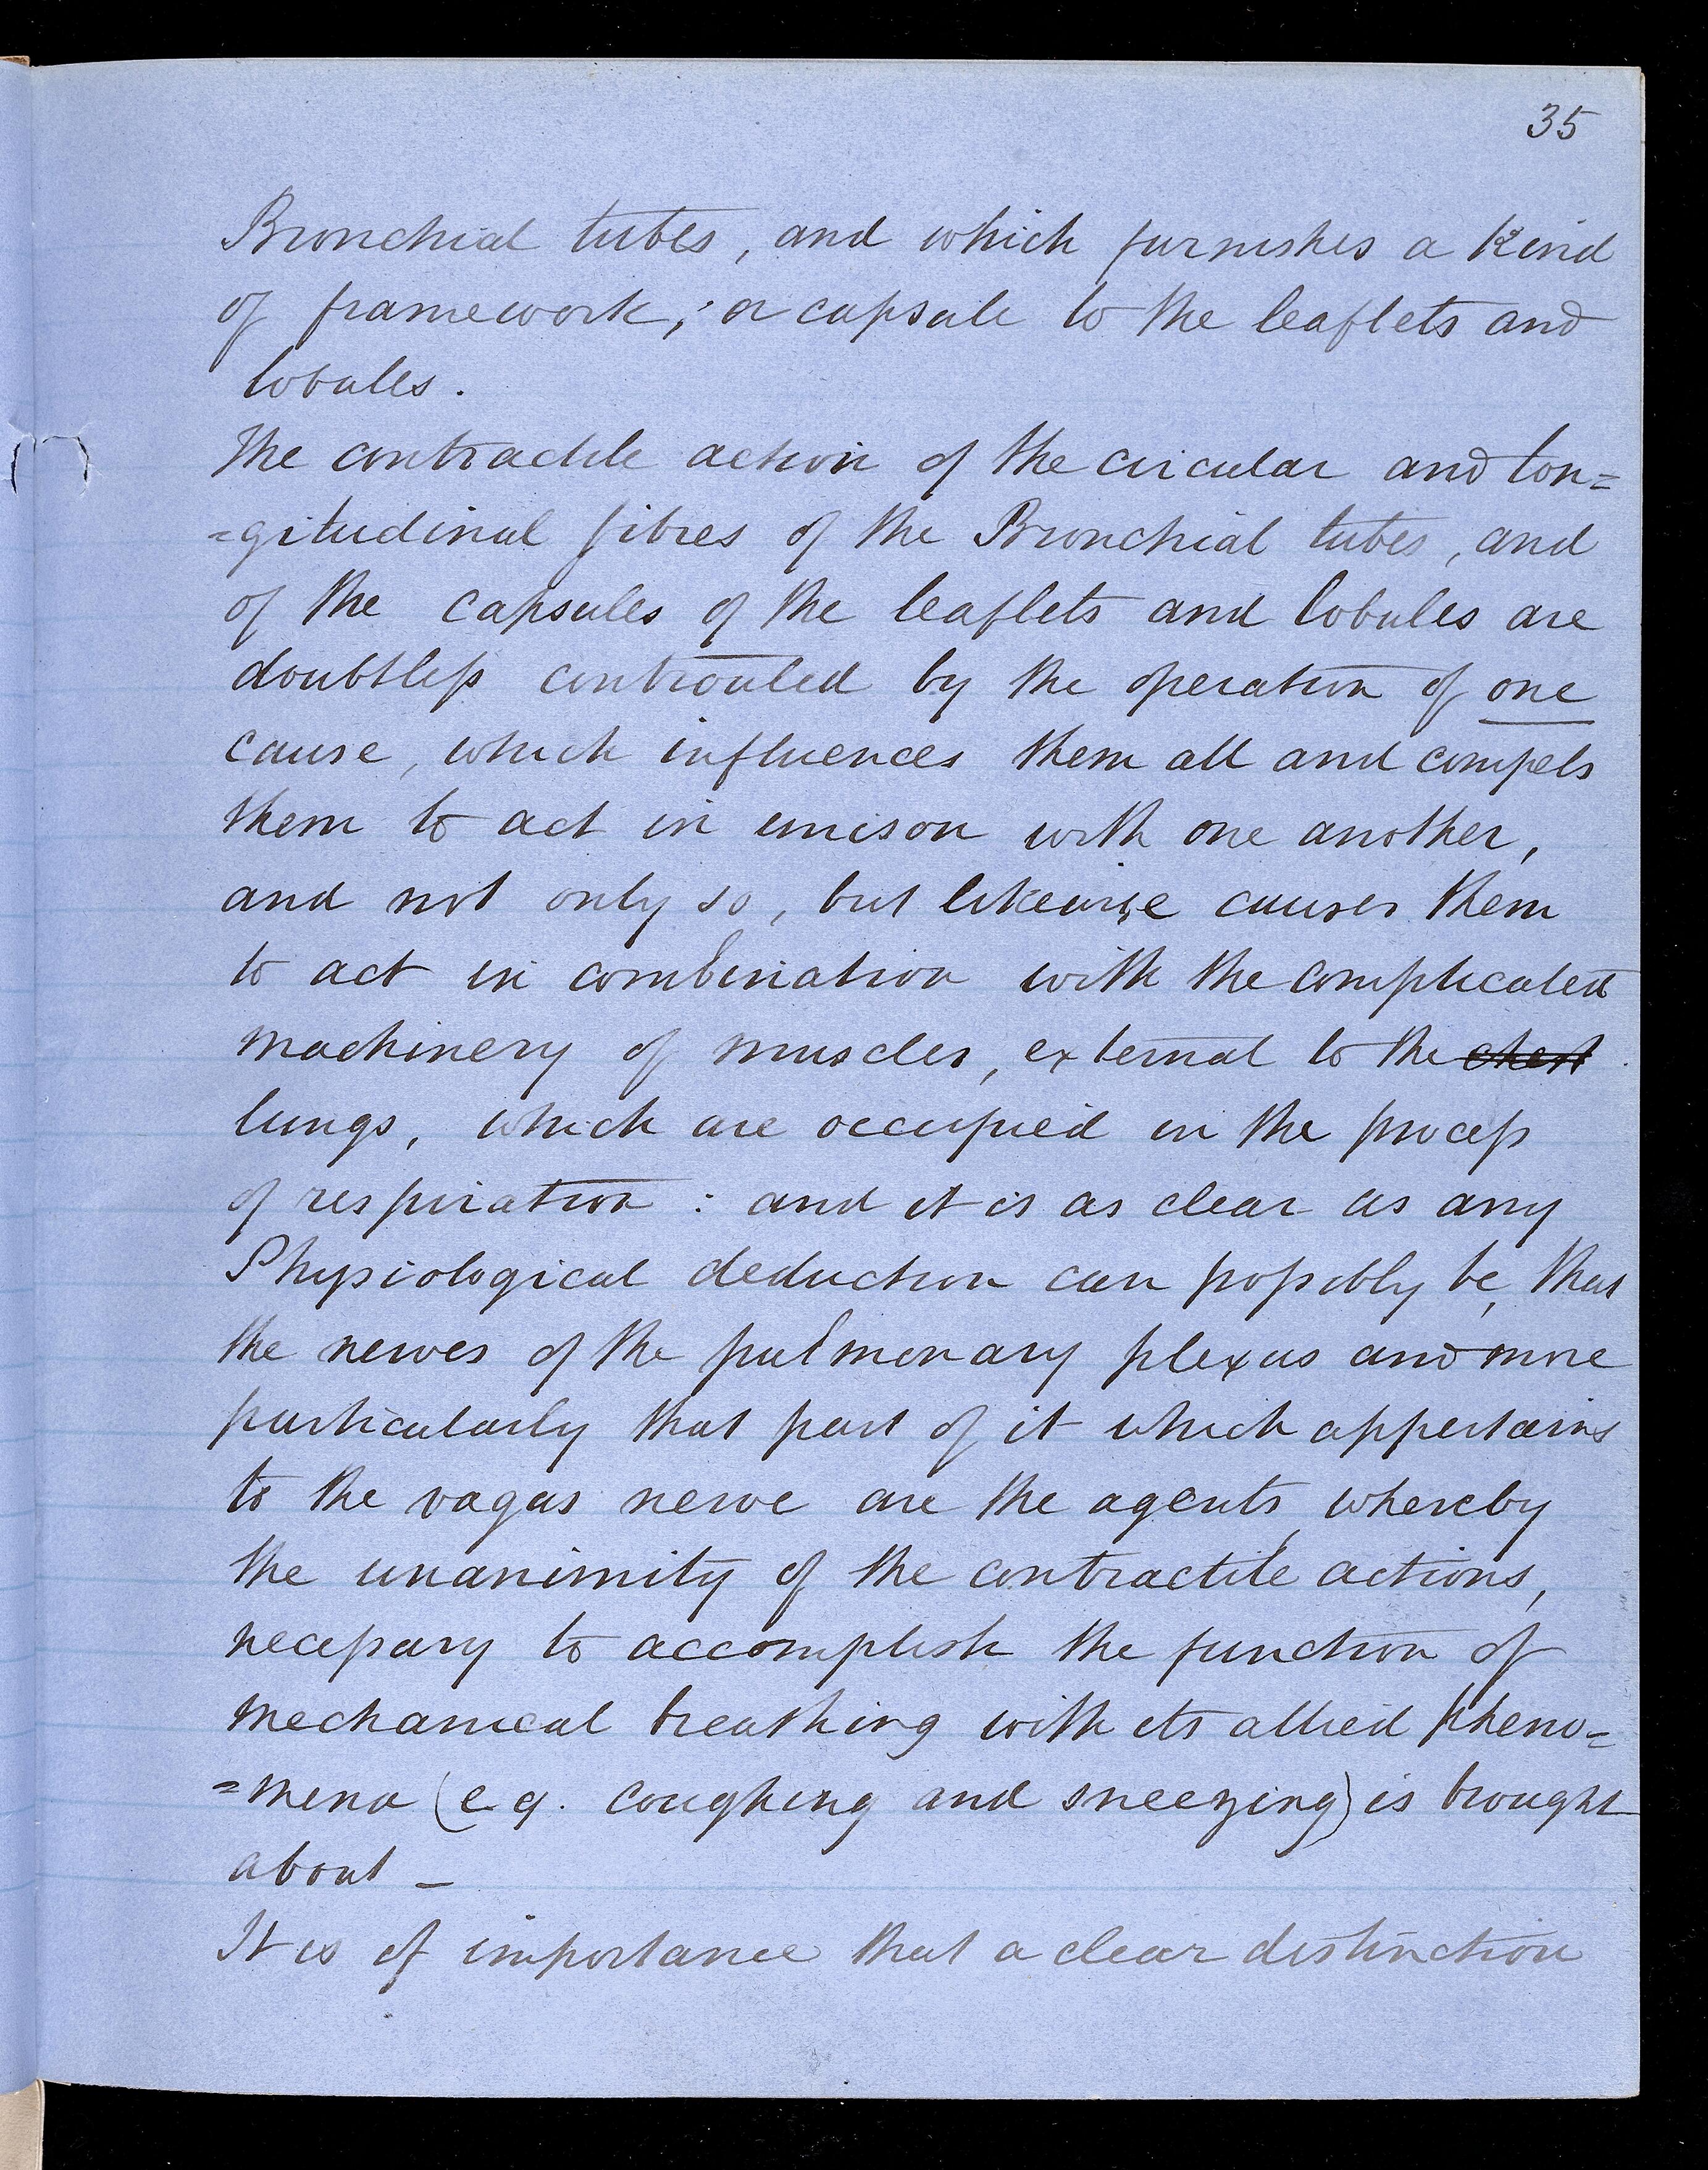 35
Bronchial tubes, and which furnishes a kind
of framework, or capsule to the leaflets and
lobules.
The contractile action of the circular and lon=
=gitudinal fibres of the Bronchial tubes, and
of the capsules of the leaflets and lobules are
doubtless controuled by the operation of one
cause, which influences them all and compels
them to act in unison with one another,
and not only so, but likewise causes them
to act in combination with the complicated
machinery of muscles, external to the chest
lungs, which are occupied in the process
of respiration : and it is as clear as any
Physiological deduction can possibly be, that
the nerves of the pulmonary plexus and more
particularly that part of it which appertains
to the vagus nerve are the agents, whereby
the unanimity of the contractile actions,
necessary to accomplish the function of
mechanical breathing with its allied pheno=
=mena (e.g. coughing and sneezing) is brought
about _
It is of importance that a clear distinction